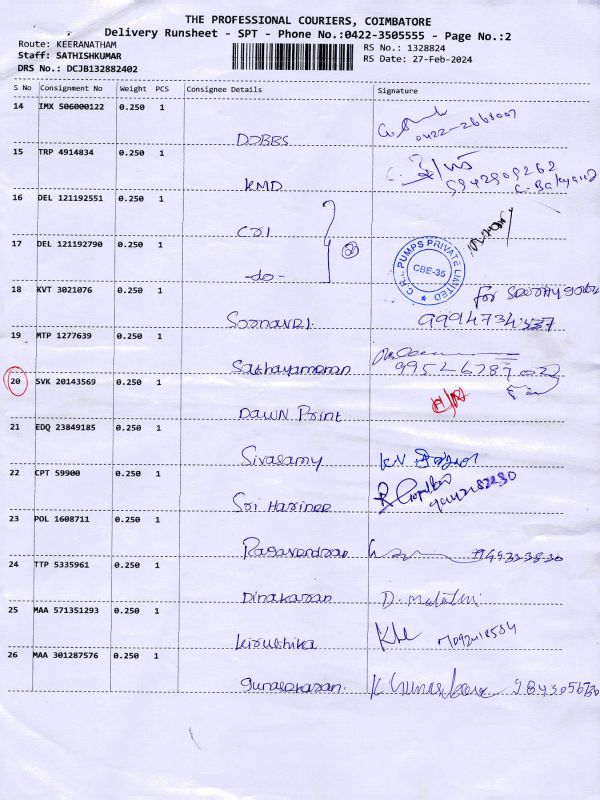 THE PROFESSIONAL COURIERS, COIMBATORE
Delivery Runsheet - SPT - Phone No.:0422-3505555 - Page No.:2
Route: KEERANATHAM
RS No.: 1328824
Staff: SATHISHKUMAR
RS Date: 27-Feb-2024
DRS No.: DCJB132882402
S No Consignment No Weight PCS Consignee Details Signature
14 IMX 506000122 0.250 1
DJBBS
15 TRP 4914834 0.250 1
KMD
16 DEL 121192551 0.250 1
CRI
17 DEL 121192790 0.250 1
-do-
C.R.I. PUMPS PRIVATE LIMITED
CBE-35
18 KVT 3021076 0.250 1
for
Sornavel
19 MTP 1277639 0.250 1
Sathayamoran
20 SVK 20143569 0.250 1
Dawn Print
21 EDQ 23849185 0.250 1
Sivasamy K.V.
22 CPT 59900 0.250 1
Sri Harinee
23 POL 1608711 0.250 1
Ragavendran
24 TTP 5335961 0.250 1
Dinakaran D. Malathi
25 MAA 571351293 0.250 1
Kiruthika
26 MAA 301287576 0.250 1
Gunalekaran